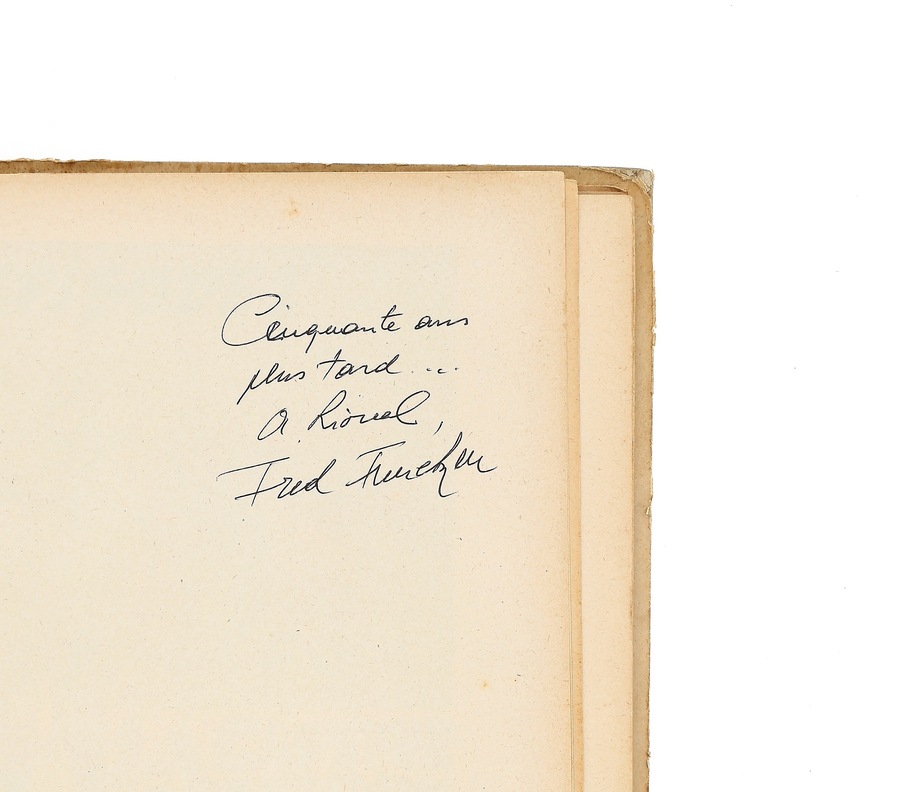 Cinquante ans
plus tard ...
A Lionel,
Fred Funcken